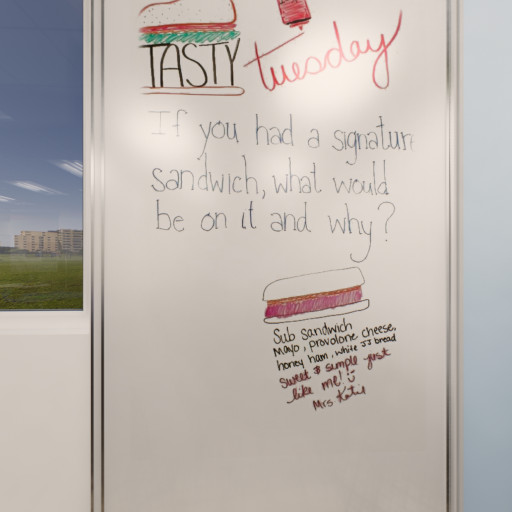 TASTY tuesday
If you had a signatur
sandwich, what would
be on it and why?
Sub sandwich
Mayo, provolone cheese,
honey ham, white JJ bread
sweet & simple just
like me! :)
Mrs Katie